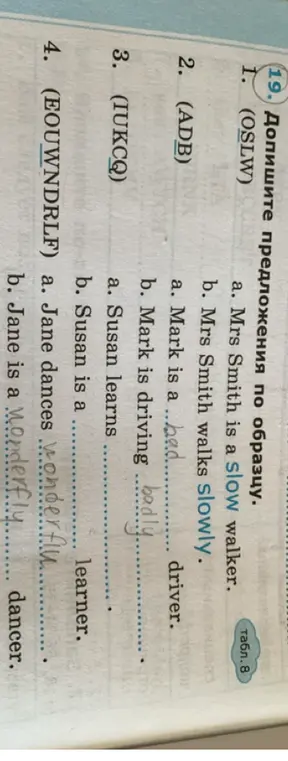 19. Допишите предложения по образцу.
табл. 8
1. (OSLW) a. Mrs Smith is a slow walker.
b. Mrs Smith walks slowly.
2. (ADB) a. Mark is a ...bad... driver.
b. Mark is driving ...badly... .
3. (IUKCQ) a. Susan learns ............ .
b. Susan is a ............ learner.
4. (EOUWNDRLF) a. Jane dances wonderfly... .
b. Jane is a wonderfly... dancer.